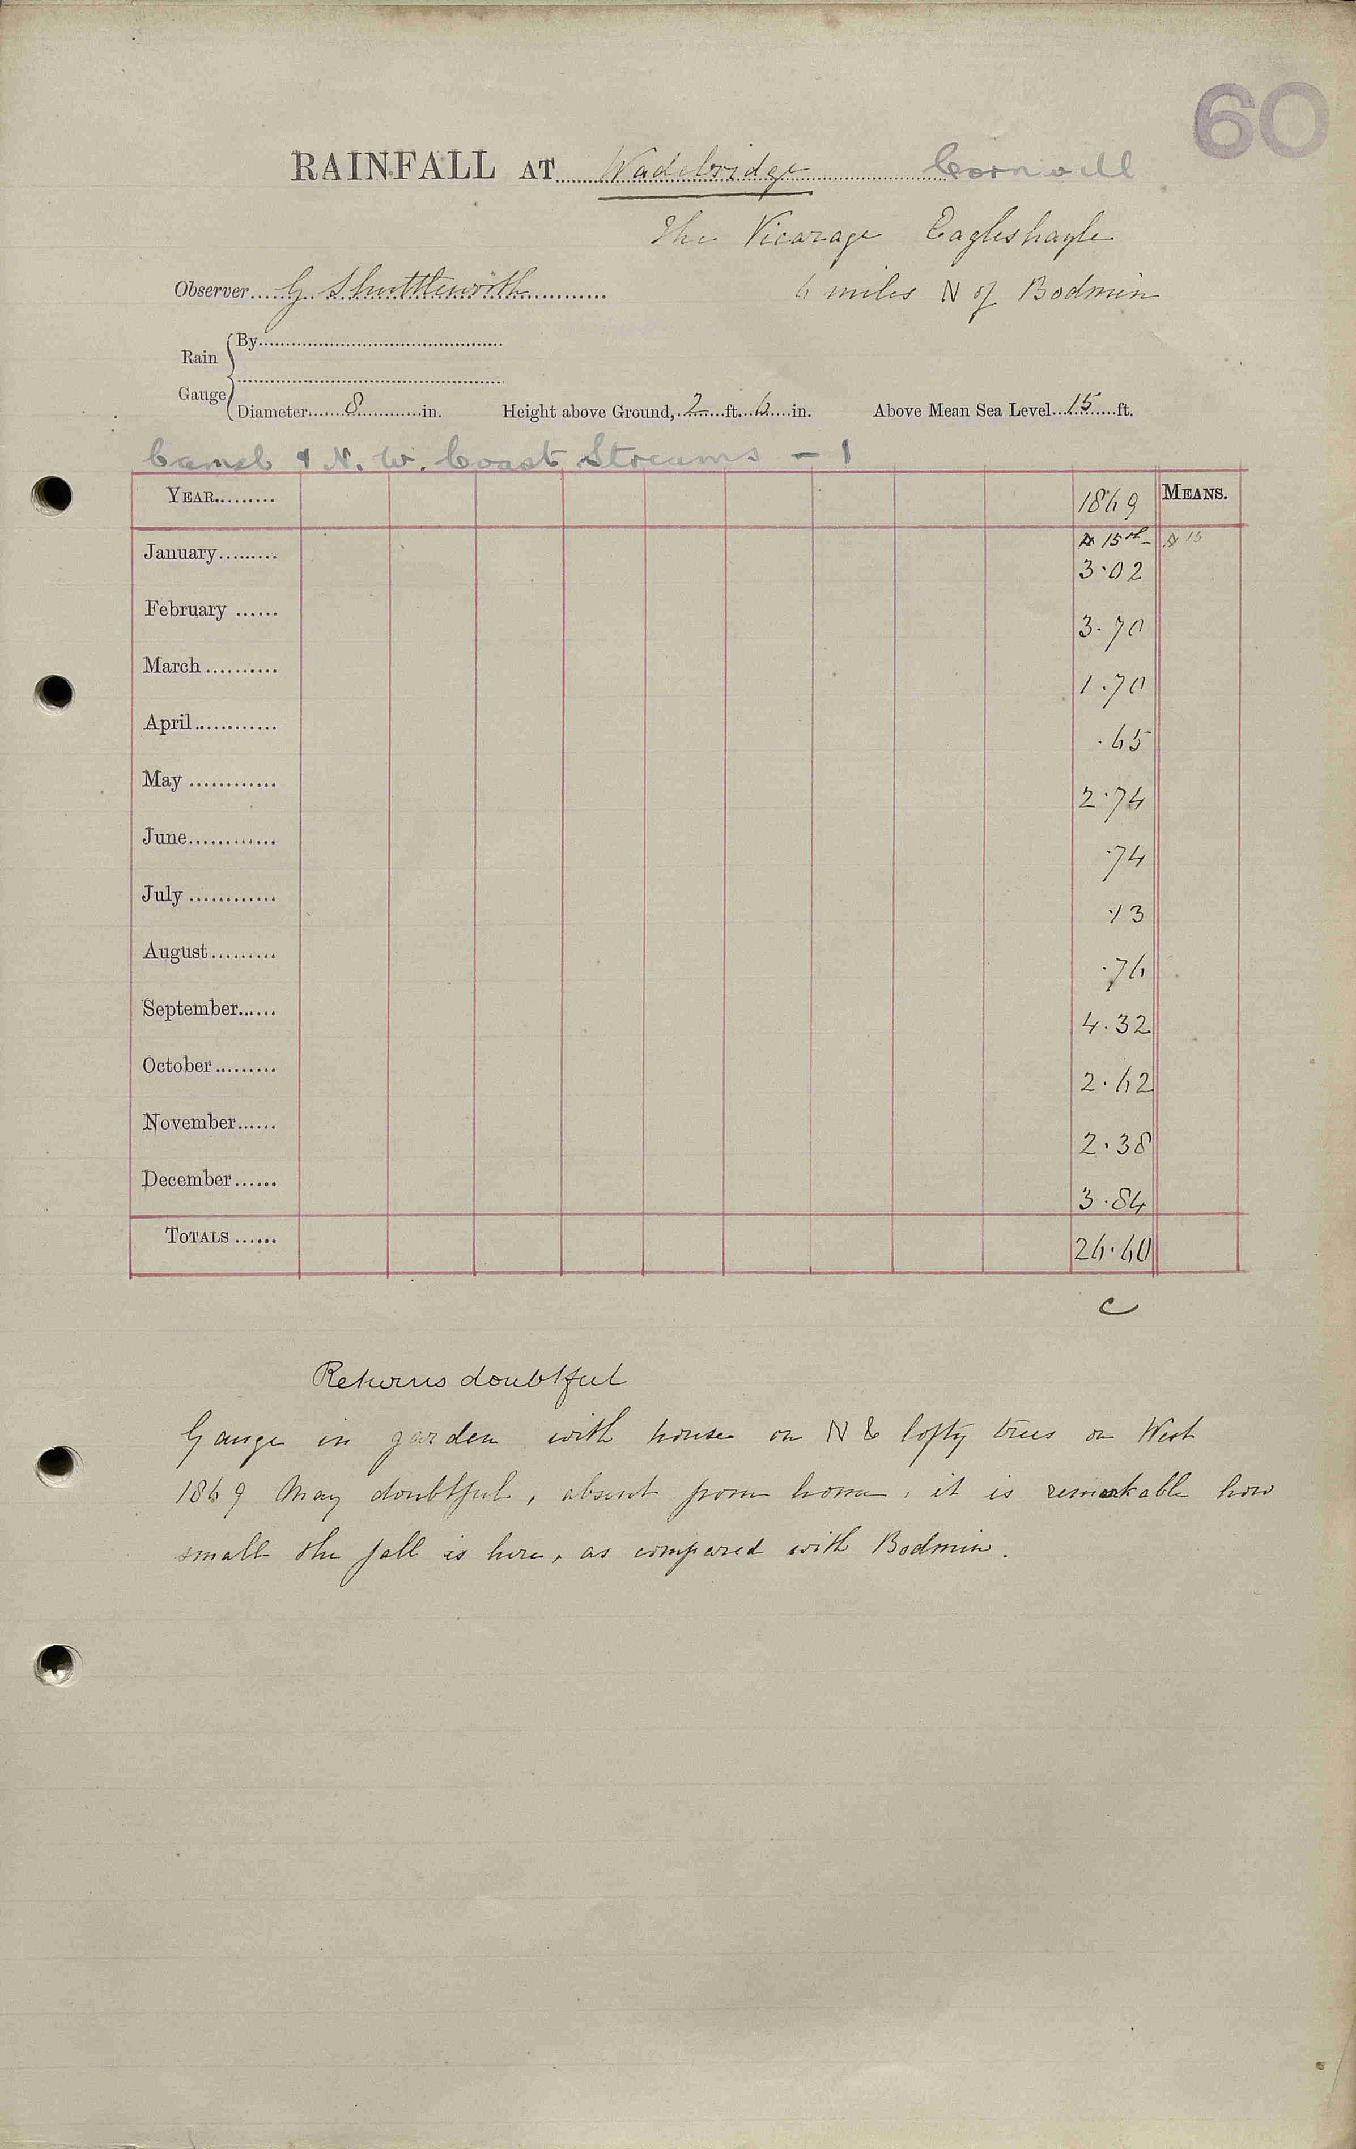 60
RAINFALL AT Wadebridge Cornwall
The Vicarage Eagleshayle
Observer G Shuttleworth 6 miles N of Bodmin
Rain Gauge { By
Diameter 8 in. Height above Ground, 2 ft. 6 in. Above Mean Sea Level 15 ft.
Camel & N. W. Coast Streams - 1
YEAR 1869 MEANS.
△ 15th △ 15
January 3.02
February 3.70
March 1.70
April .65
May 2.74
June .74
July .13
August .76
September 4.32
October 2.62
November 2.38
December 3.84
TOTALS 26.60
c
Returns doubtful
Gauge in garden with house on N & lofty trees on West
1869 May doubtful, absent from home, it is remarkable how
small the fall is here, as compared with Bodmin.